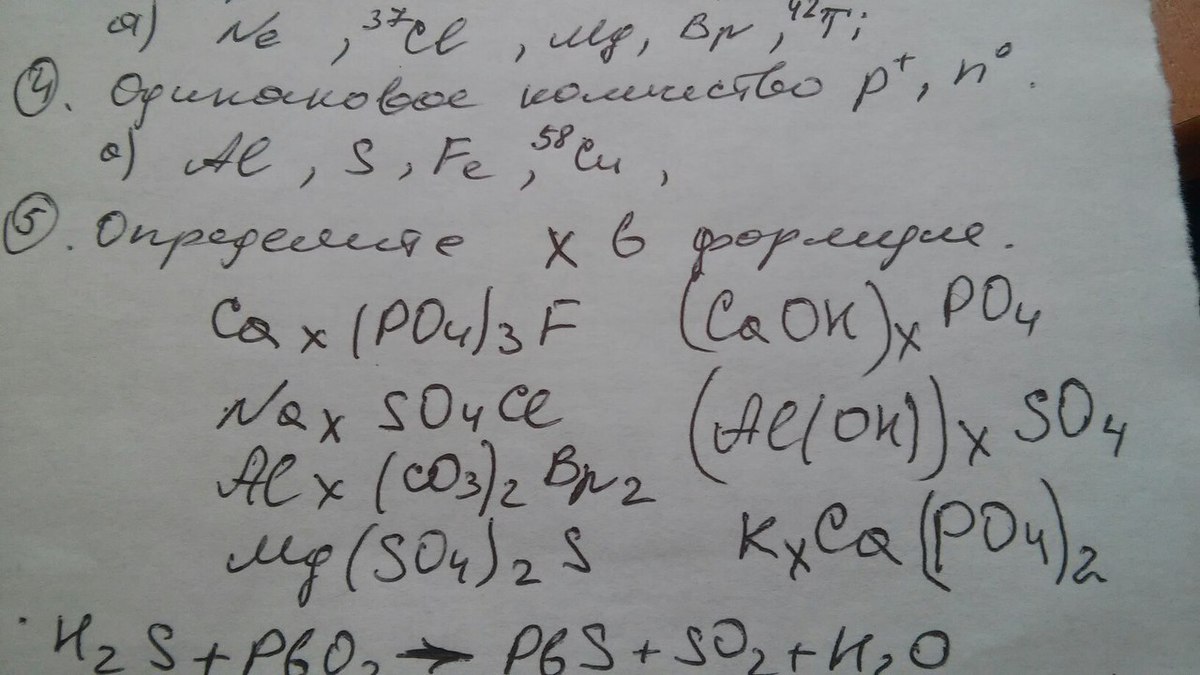 а) Ne, ³⁷Cl, Mg, Br, ⁴²Ti;
④. Одинаковое количество p⁺, n⁰.
а) Al, S, Fe, ⁵⁸Cu,
⑤. Определите x в формуле.
Caₓ(PO₄)₃F (CaOH)ₓPO₄
NaₓSO₄Cl (Al(OH))ₓSO₄
Alₓ(CO₃)₂Br₂
Mg(SO₄)₂S KₓCa(PO₄)₂
H₂S + PbO₂ → PbS + SO₂ + H₂O